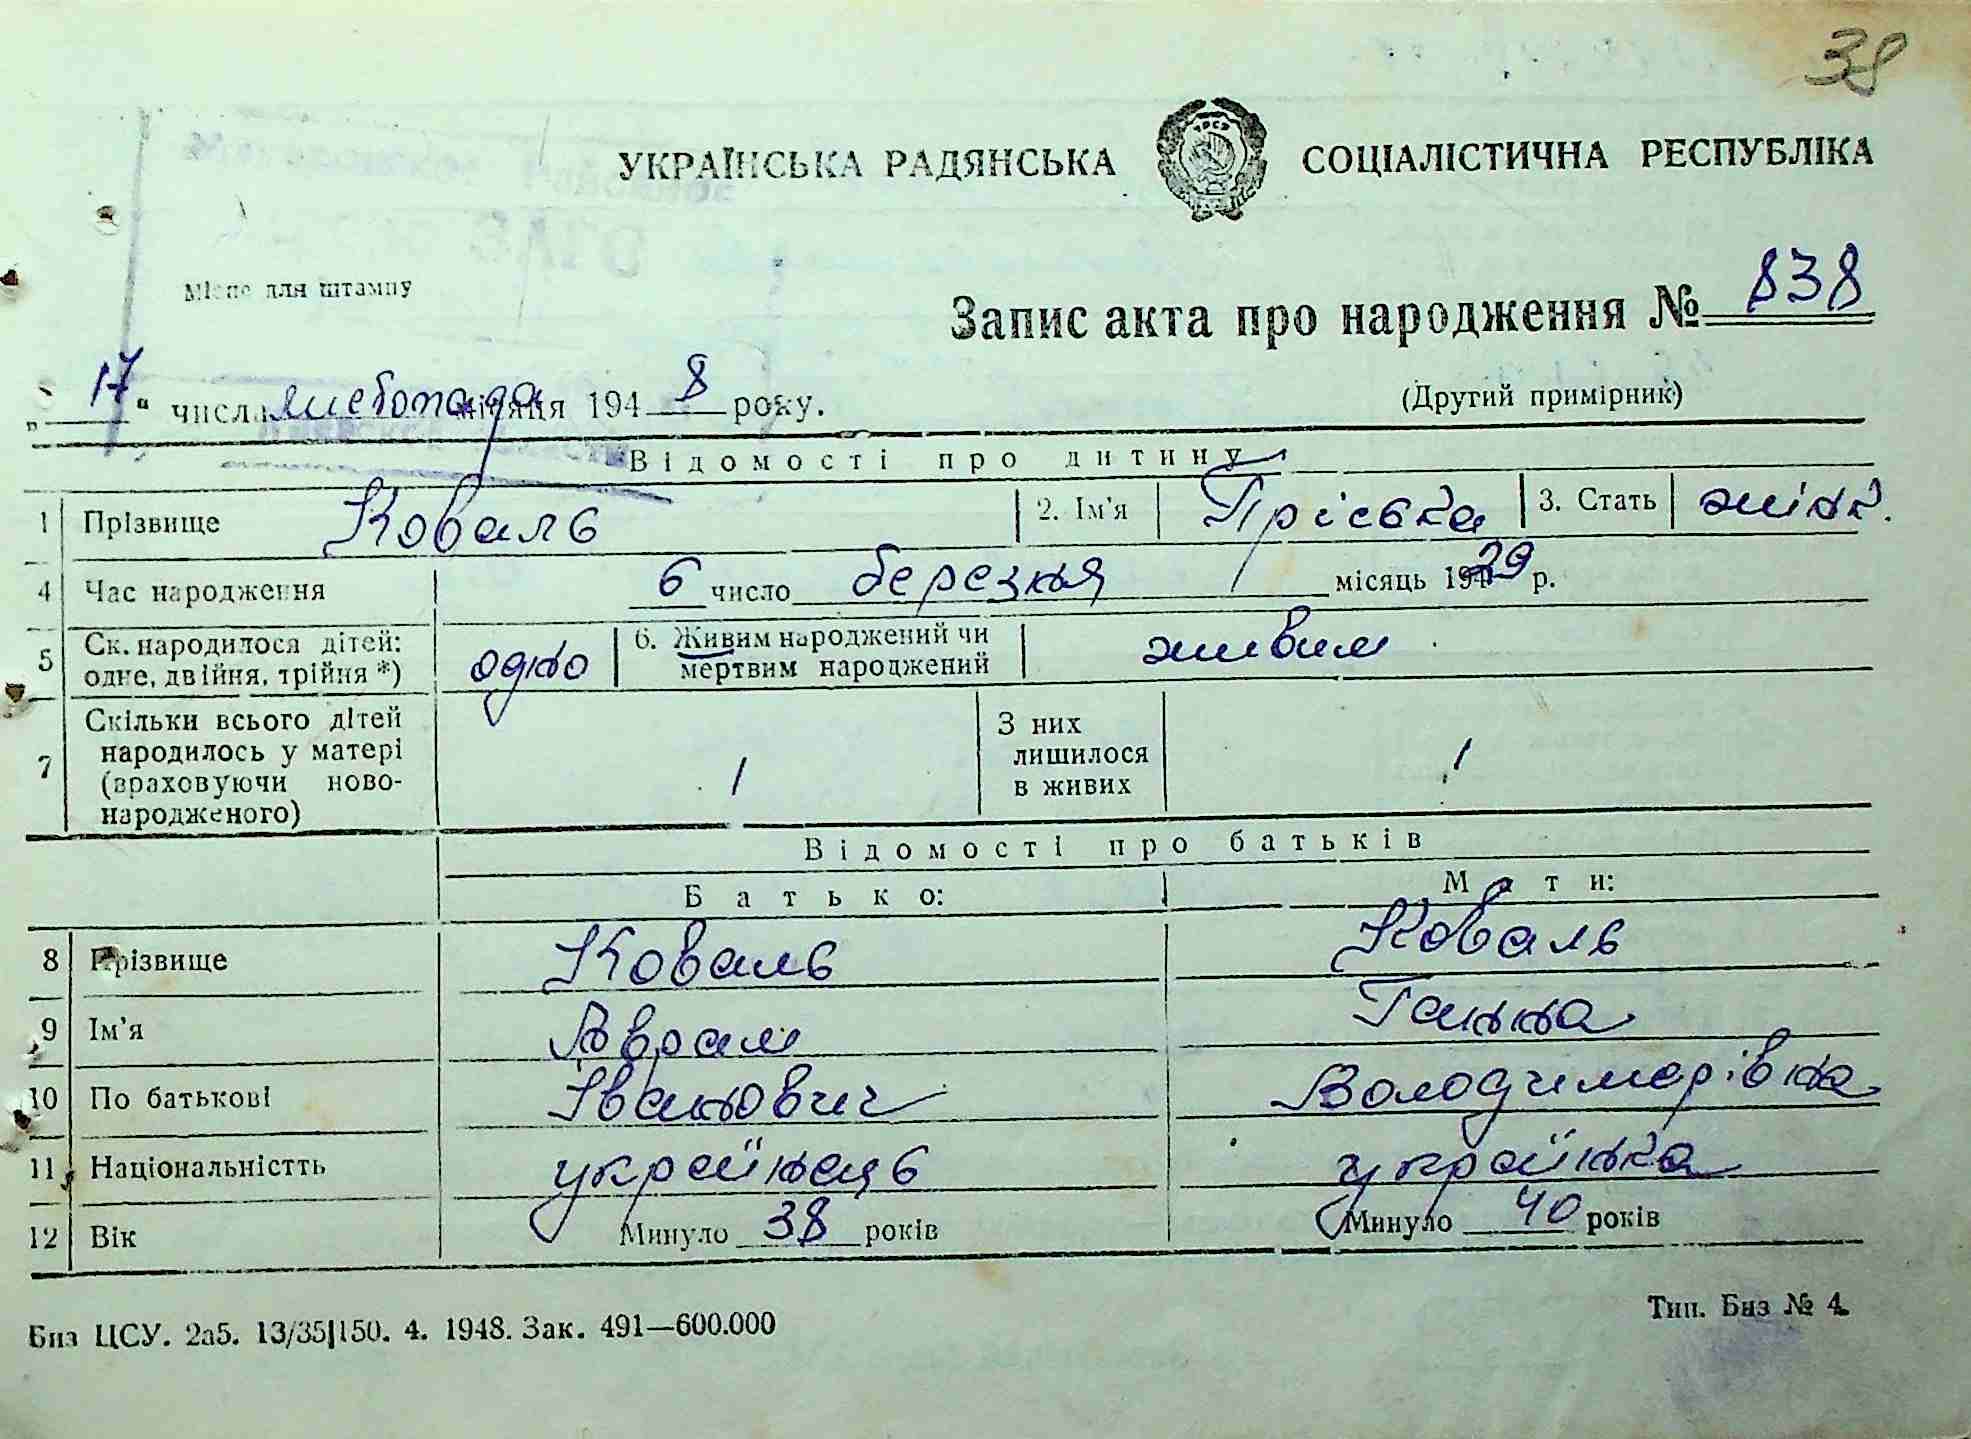 38
УКРАЇНСЬКА РАДЯНСЬКА СОЦІАЛІСТИЧНА РЕСПУБЛІКА
Місце для штампу
Запис акта про народження № 838
„17“ числа листопада місяця 1948 року.
(Другий примірник)
Відомості про дитину
1 Прізвище Коваль 2. Ім'я Пріська 3. Стать жінк.
4 Час народження 6 число березня місяць 1929 р.
5 Ск. народилося дітей: одне, двійня, трійня *) одно 6. Живим народжений чи мертвим народжений живим
7 Скільки всього дітей народилось у матері (враховуючи новонародженого) 1 З них лишилося в живих 1
Відомості про батьків
Батько: Мати:
8 Прізвище Коваль Коваль
9 Ім'я Аврам Ганна
10 По батькові Іванович Володимерівна
11 Національністть українець українка
12 Вік Минуло 38 років Минуло 40 років
Биз ЦСУ. 2а5. 13/35|150. 4. 1948. Зак. 491—600.000
Тип. Биз № 4.